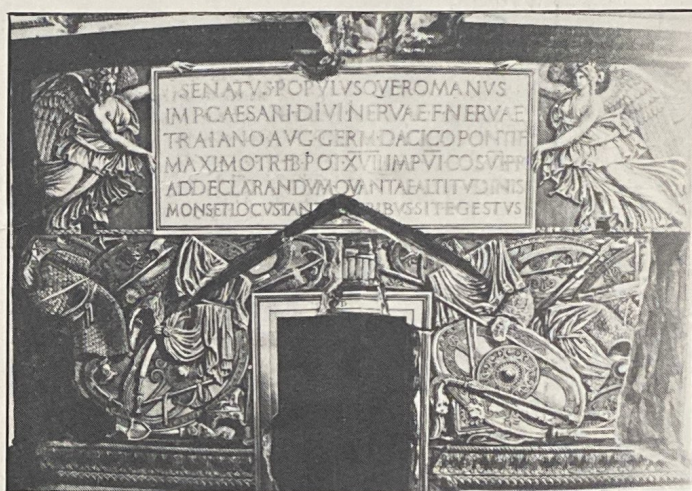 SENATVS·POPVLVSQVE·ROMANVS
IMP·CAESARI·DIVI·NERVAE·F·NERVAE
TRAIANO·AVG·GERM·DACICO·PONTIF
MAXIMO·TRIB·POT·XVII·IMP·VI·COS·VI·P·P
AD·DECLARANDVM·QVANTAE·ALTITVDINIS
MONS·ET·LOCVS·TANT IBVS·SIT·EGESTVS